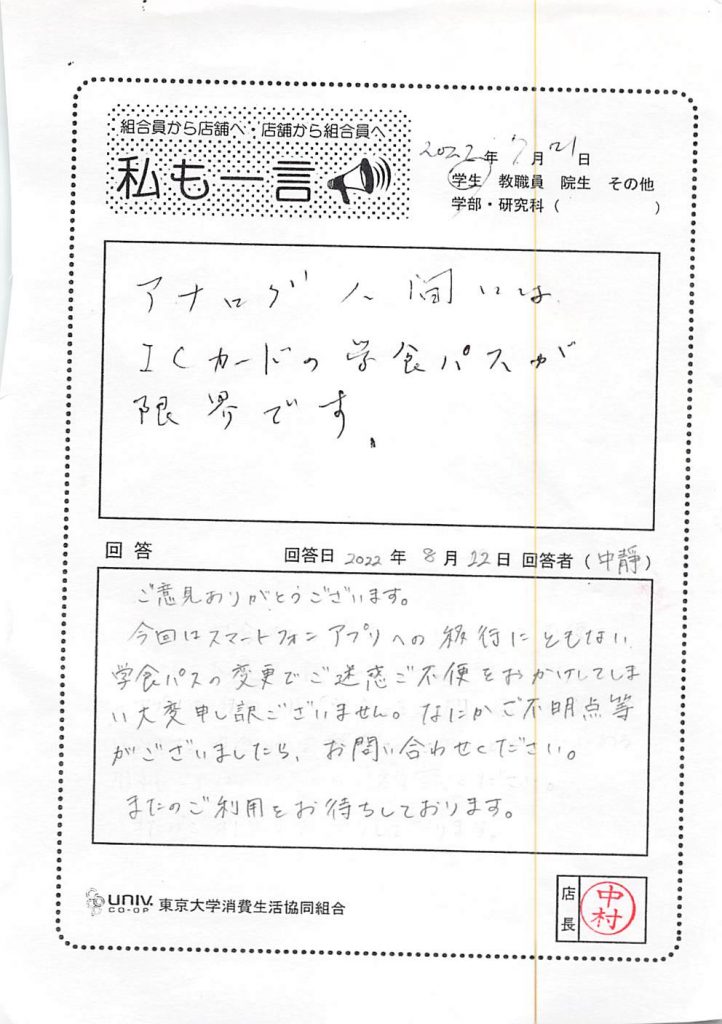 組合員から店舗へ・店舗から組合員へ
私も一言
2022年 7月 21日
学生 教職員 院生 その他
学部・研究科（ ）
アナログ人間には
ICカードの学食パスが
限界です。
回答 回答日 2022年 8月 22日 回答者（中靜）
ご意見ありがとうございます。
今回はスマートフォンアプリへの移行にともない
学食パスの変更でご迷惑ご不便をおかけしてしま
い大変申し訳ございません。なにかご不明点等
がございましたら、お問い合わせください。
またのご利用をお待ちしております。
UNIV.
CO-OP
東京大学消費生活協同組合
店長
中村